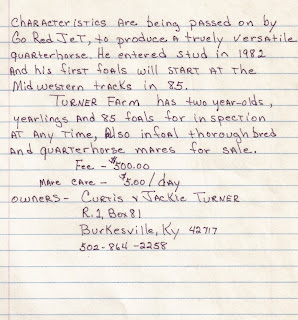 Characteristics are being passed on by
Go Red Jet, to produce a truely versatile
quarterhorse. He entered stud in 1982
and his first foals will START AT The
Midwestern tracks in 85.
Turner Farm has two year-olds,
yearlings and 85 foals for inspection
AT Any Time, Also infoal thoroughbred
and quarterhorse mares for sale.
Fee - $500.00
Mare care - $5.00/day
owners - Curtis & Jackie Turner
R.2, Box 81
Burkesville, Ky 42717
502-864-2258